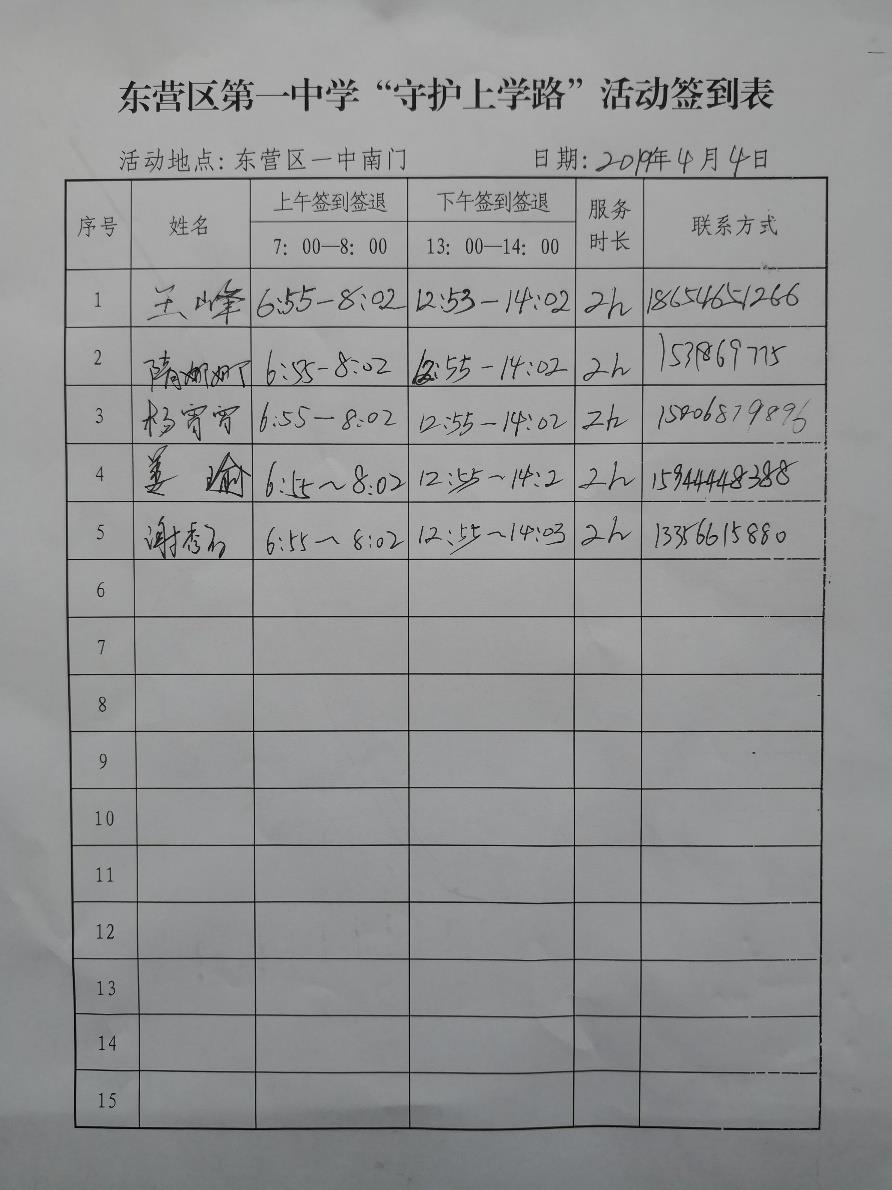 东营区第一中学“守护上学路”活动签到表
活动地点：东营区一中南门 日期：2019年4月4日
序号 姓名 上午签到签退 7：00—8：00 下午签到签退 13：00—14：00 服务时长 联系方式
1 王峰 6:55-8:02 12:53-14:02 2h 18654651266
2 隋娜娜 6:55-8:02 12:55-14:02 2h
3 杨宵宵 6:55-8:02 12:55-14:02 2h 15806879896
4 姜瑜 6:55~8:02 12:55~14:2 2h 15944448388
5 谢秀 6:55~8:02 12:55~14:03 2h 13356615880
6
7
8
9
10
11
12
13
14
15